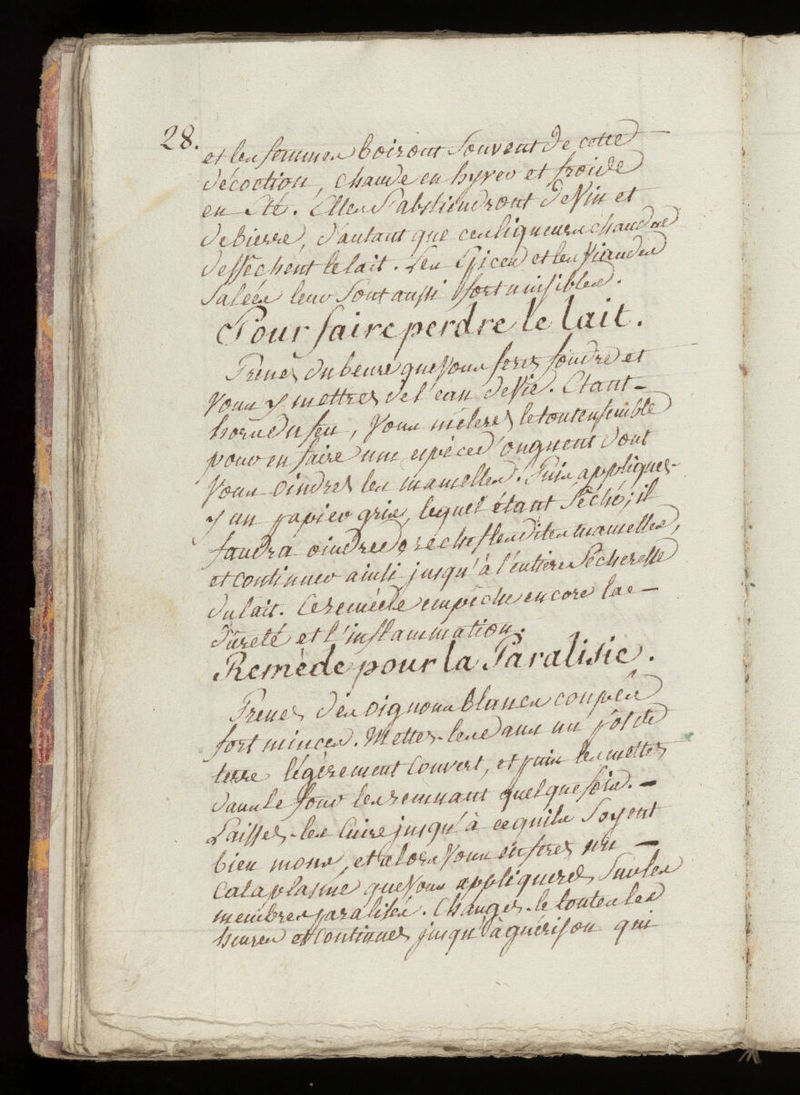 28.
et les femmes boiront souvent de cette
décoction, chaude en hyver et froide
en Eté. Elles s'abstiendront de Vin et
de bierre, d'autant que ces liqueurs chaudes
dessêchent le lait. Les Epices et les Viandes
Salées leur Sont aussi fort nuisibles.
Pour faire perdre le lait.
Prenés du beure que Vous ferés fondre et
Vous y mettres de l'eau de Vie. Etant
hors du feu, Vous mêleres le tout ensemble
pour en faire une espéce d'onguent dont
Vous oindrés les mamelles. Puis appliqués
y un papier gris, lequel étant Séché, il
faudra oindre derechef lesdites mamelles,
et continuer ainsi jusqu'à l'entiere Sécheresse
du lait. Ce reméde empêche encore la
Dureté et l'inflammation.
Reméde pour la Paralisie.
Prenés des oignons blancs coupés
fort minces. Mettes-les dans un pot de
terre légérement Couvert, et puis les mettés
dans le four les remuant quelquefois.
Laissés-les Cuire jusqu'à ce quils Soyent
bien mous, et alors Vous en ferés un
Cataplasme que Vous appliqueres Sur les
membres paralisés. Changés-le toutes les
heures et Continués jusqu'à guérison qui